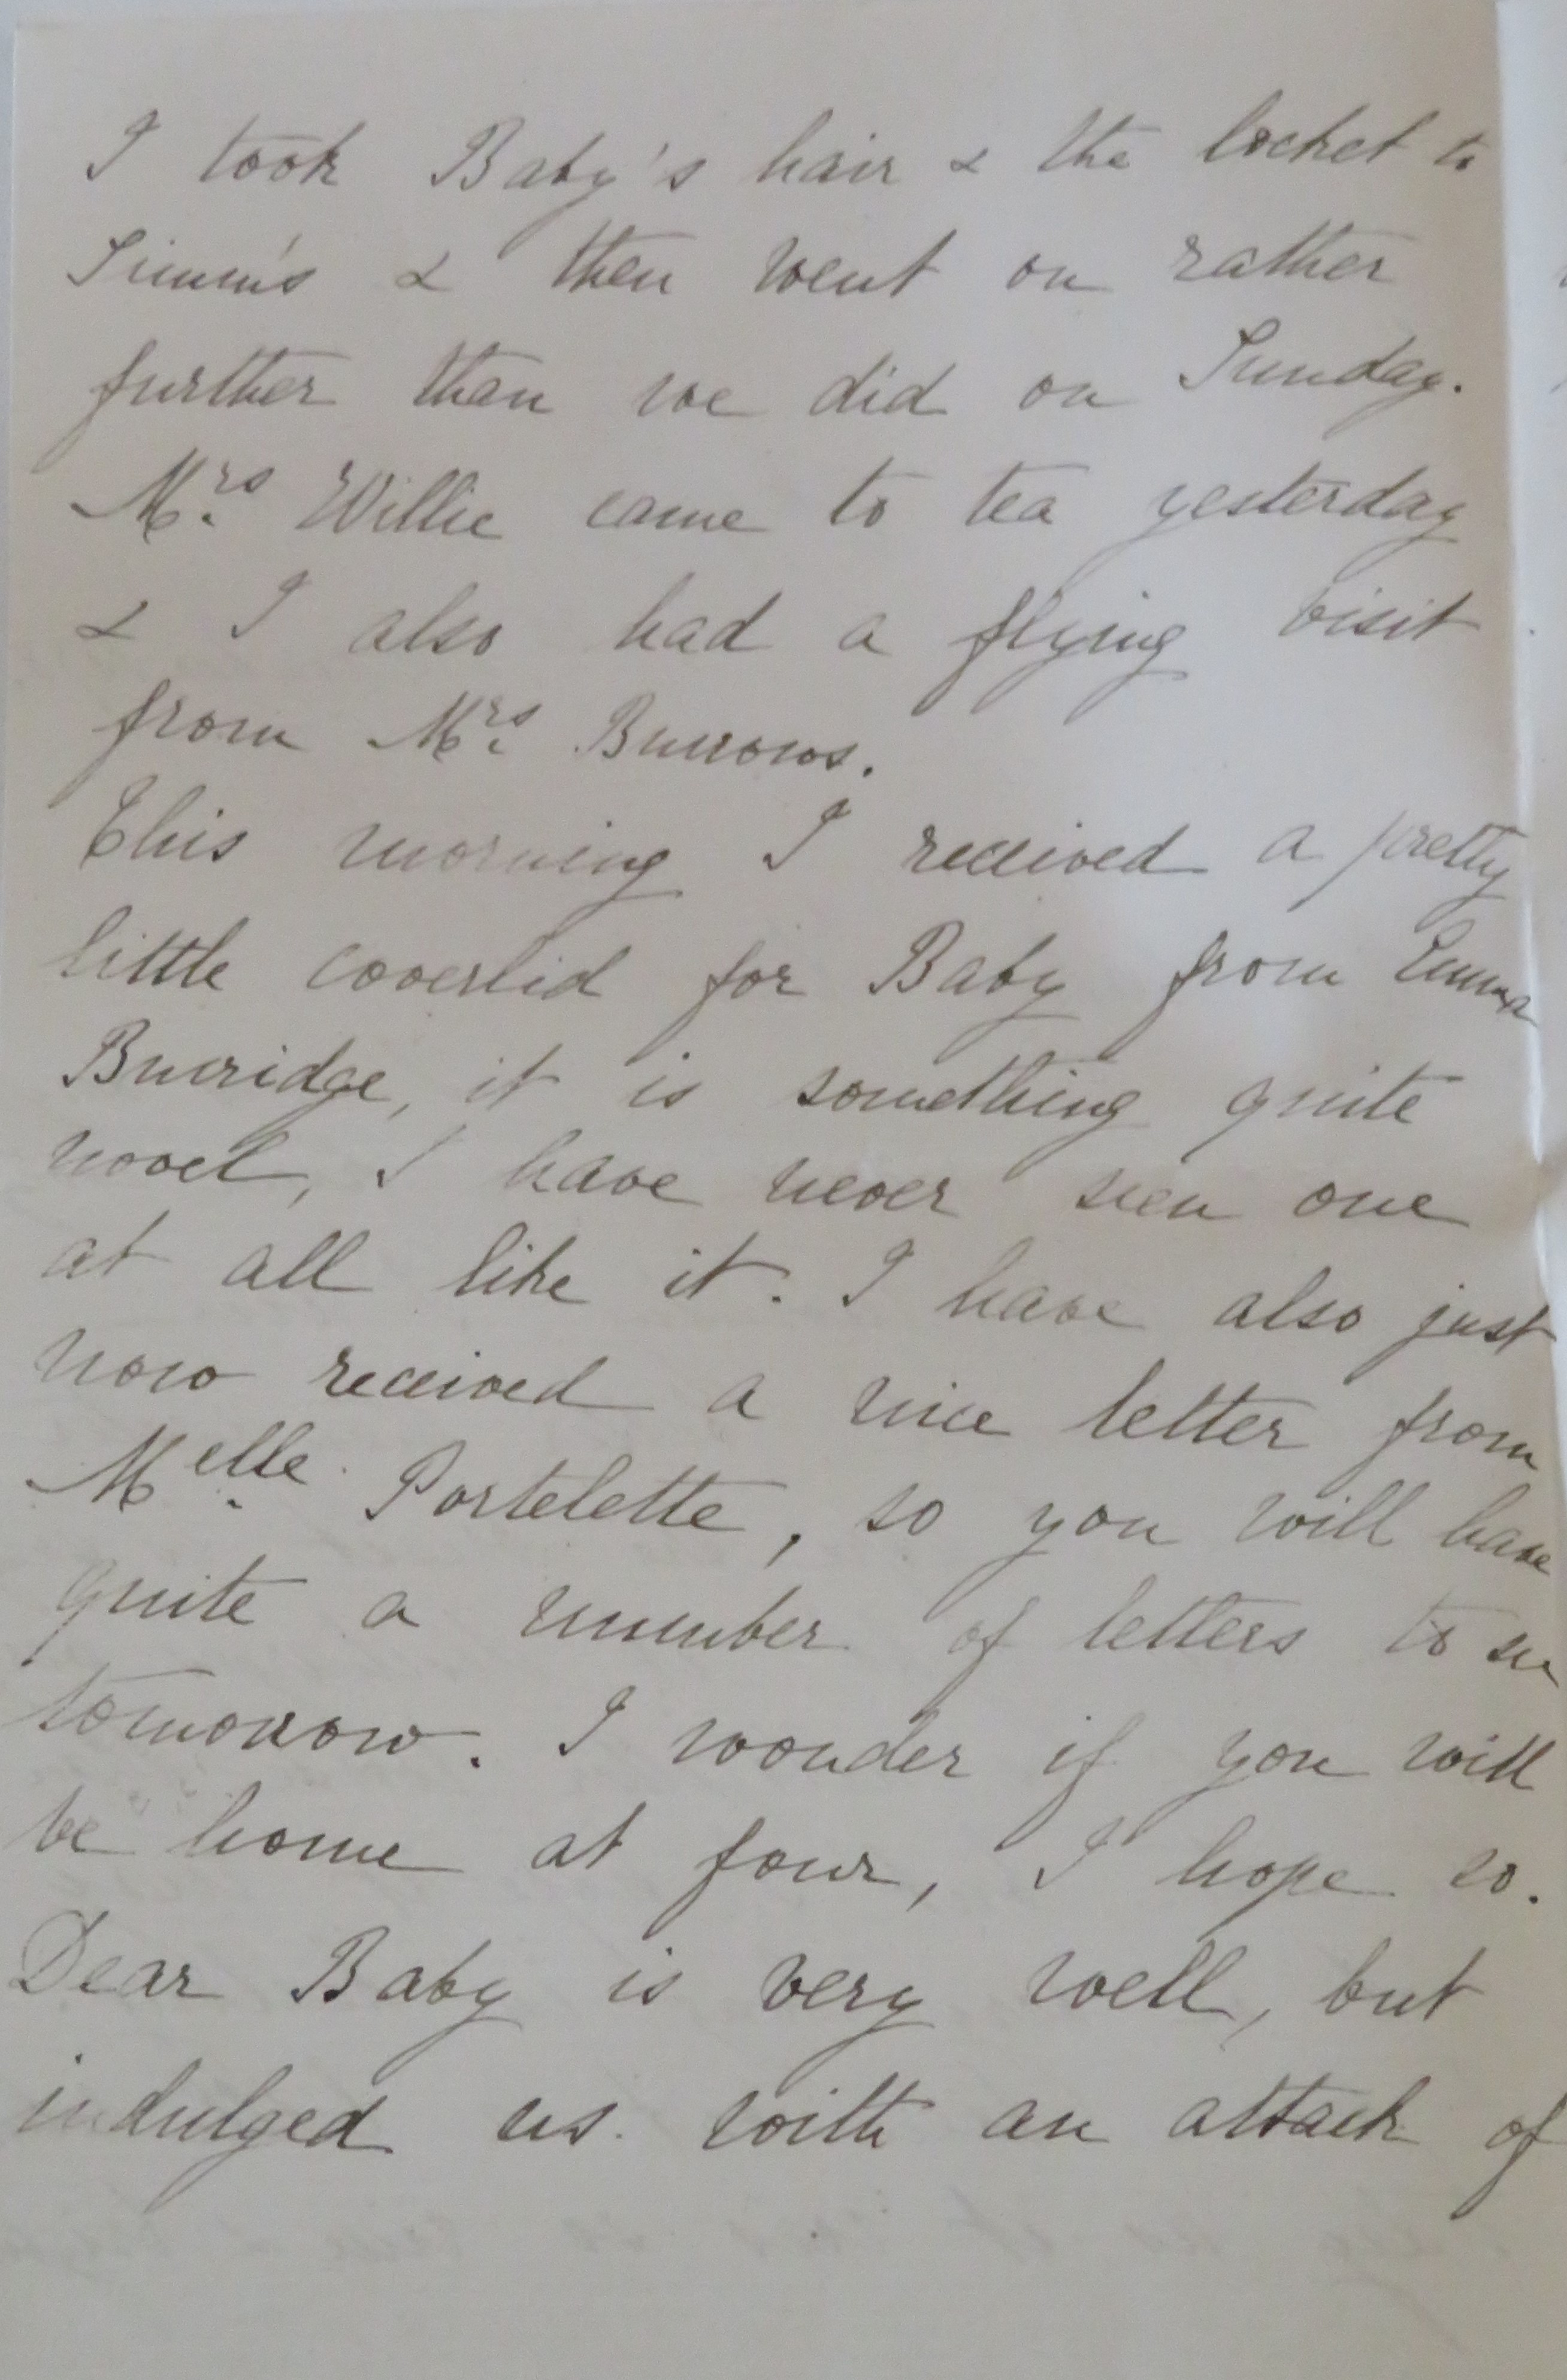 I took Baby's hair & the locket to
Simm's & then went on rather
further than we did on Sunday.
Mrs. Willie came to tea yesterday
& I also had a flying visit
from Mrs. Burrows.
This morning I received a pretty
little coverlid for Baby from Emma
Burridge, it is something quite
novel, I have never seen one
at all like it. I have also just
now received a nice letter from
Melle. Portelette, so you will have
quite a number of letters to see
tomorrow. I wonder if you will
be home at four, I hope so.
Dear Baby is very well, but
indulged us with an attack of